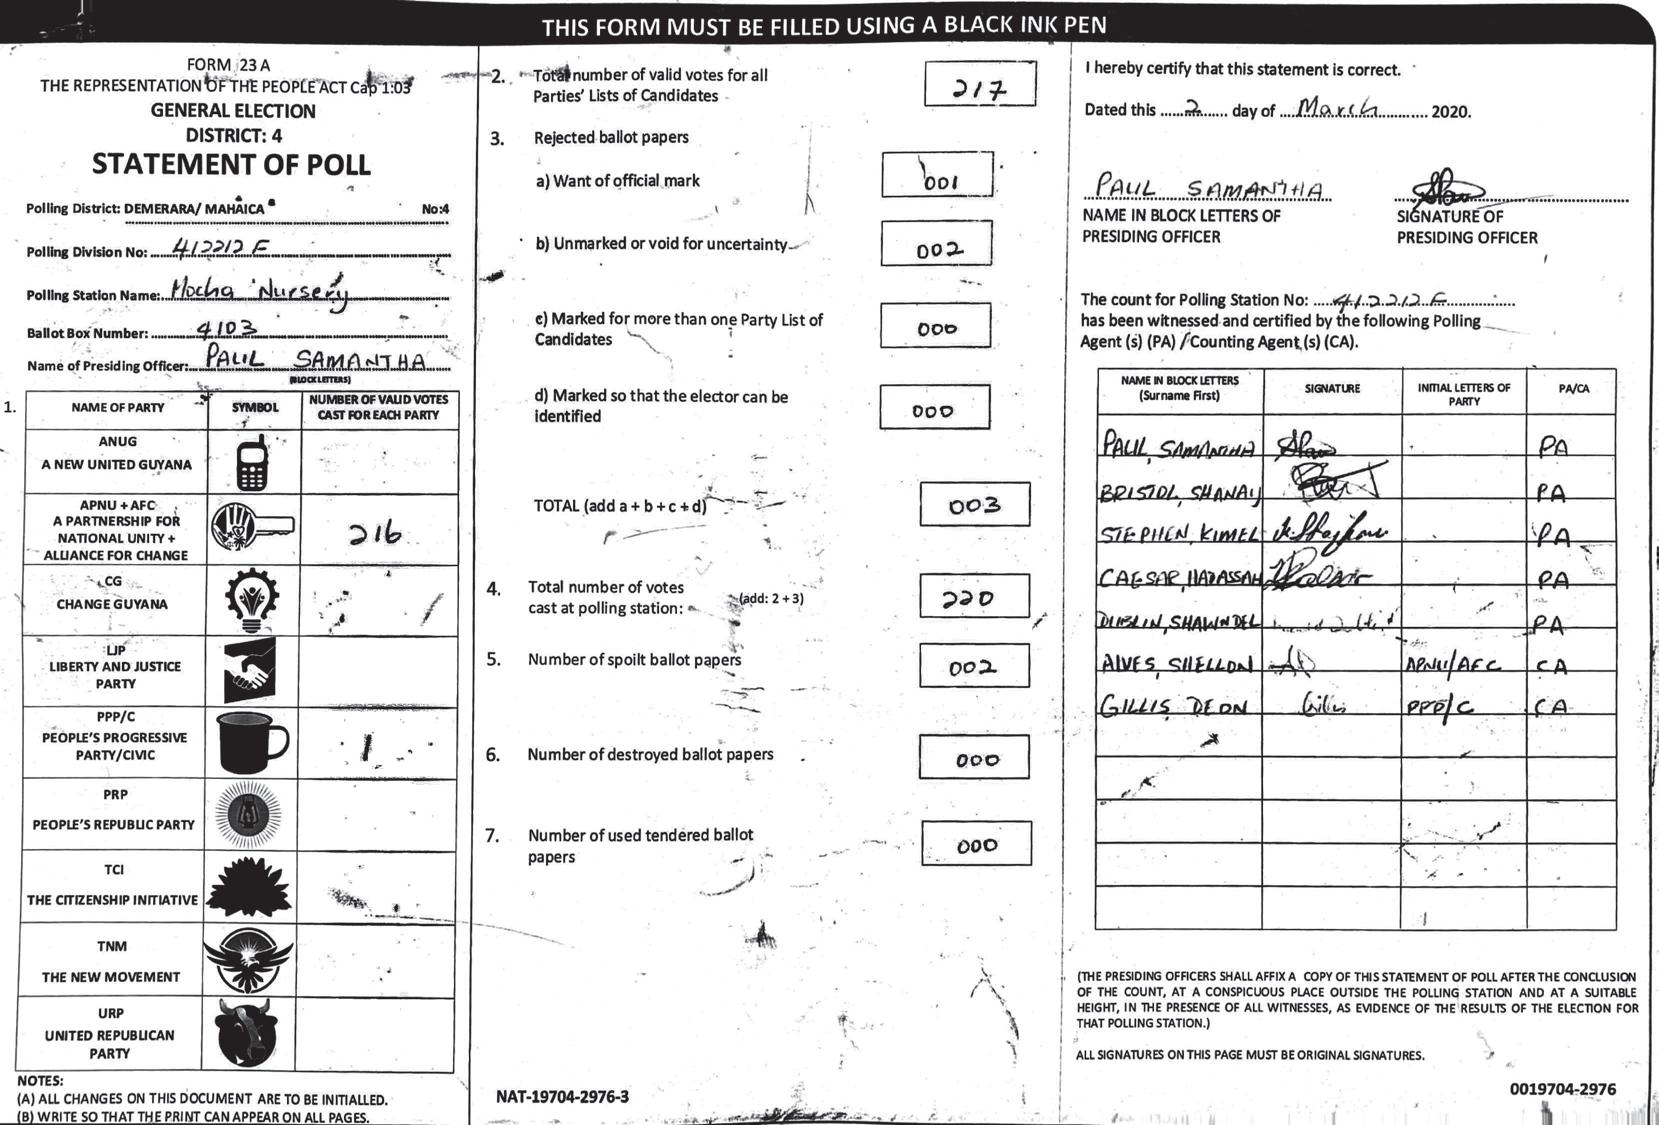 THIS FORM MUST BE FILLED USING A BLACK INK PEN
FORM 23 A
THE REPRESENTATION OF THE PEOPLE ACT Cap 1:03
GENERAL ELECTION
DISTRICT: 4
STATEMENT OF POLL
Polling District: DEMERARA/ MAHAICA No:4
Polling Division No: 412212F
Polling Station Name: Mocha Nursery
Ballot Box Number: 4103
Name of Presiding Officer: PAUL SAMANTHA
(BLOCK LETTERS)
1.
NAME OF PARTY SYMBOL NUMBER OF VALID VOTES
CAST FOR EACH PARTY
ANUG
A NEW UNITED GUYANA
APNU + AFC
A PARTNERSHIP FOR
NATIONAL UNITY +
ALLIANCE FOR CHANGE
216
CG
CHANGE GUYANA
LJP
LIBERTY AND JUSTICE
PARTY
PPP/C
PEOPLE'S PROGRESSIVE
PARTY/CIVIC
1
PRP
PEOPLE'S REPUBLIC PARTY
TCI
THE CITIZENSHIP INITIATIVE
TNM
THE NEW MOVEMENT
URP
UNITED REPUBLICAN
PARTY
NOTES:
(A) ALL CHANGES ON THIS DOCUMENT ARE TO BE INITIALLED.
(B) WRITE SO THAT THE PRINT CAN APPEAR ON ALL PAGES.
2. Total number of valid votes for all
Parties' Lists of Candidates
217
3. Rejected ballot papers
a) Want of official mark 001
b) Unmarked or void for uncertainty 002
c) Marked for more than one Party List of
Candidates
000
d) Marked so that the elector can be
identified
000
TOTAL (add a + b + c + d) 003
4. Total number of votes
cast at polling station: (add: 2 + 3)
220
5. Number of spoilt ballot papers 002
6. Number of destroyed ballot papers 000
7. Number of used tendered ballot
papers
000
NAT-19704-2976-3
I hereby certify that this statement is correct.
Dated this 2 day of March 2020.
PAUL SAMANTHA
NAME IN BLOCK LETTERS OF
PRESIDING OFFICER
SIGNATURE OF
PRESIDING OFFICER
The count for Polling Station No: 412212F
has been witnessed and certified by the following Polling
Agent (s) (PA) /Counting Agent (s) (CA).
NAME IN BLOCK LETTERS
(Surname First)
SIGNATURE
INITIAL LETTERS OF
PARTY
PA/CA
PAUL, SAMANTHA PA
BRISTOL, SHANAY PA
STEPHEN, KIMEL PA
CAESAR, HADASSAH PA
DUBLIN, SHAWNDEL PA
ALVES, SHELLON APNU/AFC CA
GILLIS, DEON Gillis PPP/C CA
(THE PRESIDING OFFICERS SHALL AFFIX A COPY OF THIS STATEMENT OF POLL AFTER THE CONCLUSION
OF THE COUNT, AT A CONSPICUOUS PLACE OUTSIDE THE POLLING STATION AND AT A SUITABLE
HEIGHT, IN THE PRESENCE OF ALL WITNESSES, AS EVIDENCE OF THE RESULTS OF THE ELECTION FOR
THAT POLLING STATION.)
ALL SIGNATURES ON THIS PAGE MUST BE ORIGINAL SIGNATURES.
0019704-2976